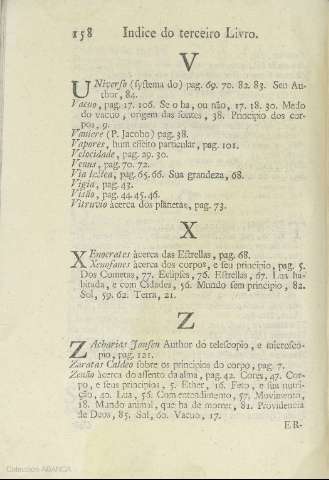 158 Indice do terceiro Livro.
V
UNiverso (systema do) pag. 69. 70. 82. 83. Seu Au-
thor, 84.
Vacuo, pag. 17. 106. Se o ha, ou não, 17. 18. 30. Medo
do vacuo, origem das fontes, 38. Principio dos cor-
pos, 9.
Vaniere (P. Jacobo) pag. 38.
Vapores, hum effeito particular, pag. 101.
Velocidade, pag. 29. 30.
Venus, pag. 70. 72.
Via lactea, pag. 65. 66. Sua grandeza, 68.
Vigia, pag. 43.
Visão, pag. 44. 45. 46.
Vitruvio àcerca dos planetas, pag. 73.
X
XEnocrates àcerca das Estrellas, pag. 68.
Xenofanes àcerca dos corpos, e seu principio, pag. 5.
Dos Cometas, 77. Eclipses, 76. Estrellas, 67. Lua ha-
bitada, e com Cidades, 56. Mundo sem principio, 82.
Sol, 59. 62. Terra, 21.
Z
ZAcharias Jansen Author do telescopio, e microsco-
pio, pag. 121.
Zaratas Caldeo sobre os principios do corpo, pag. 7.
Zenão àcerca do assento da alma, pag. 42. Cores, 47. Cor-
po, e seus principios, 5. Ether, 16. Feto, e sua nutri-
ção, 40. Lua, 56. Com entendimento, 57. Movimento,
18. Mundo animal, que ha de morrer, 81. Providencia
de Deos, 85. Sol, 60. Vacuo, 17.
ER-
Coleccion ABANCA